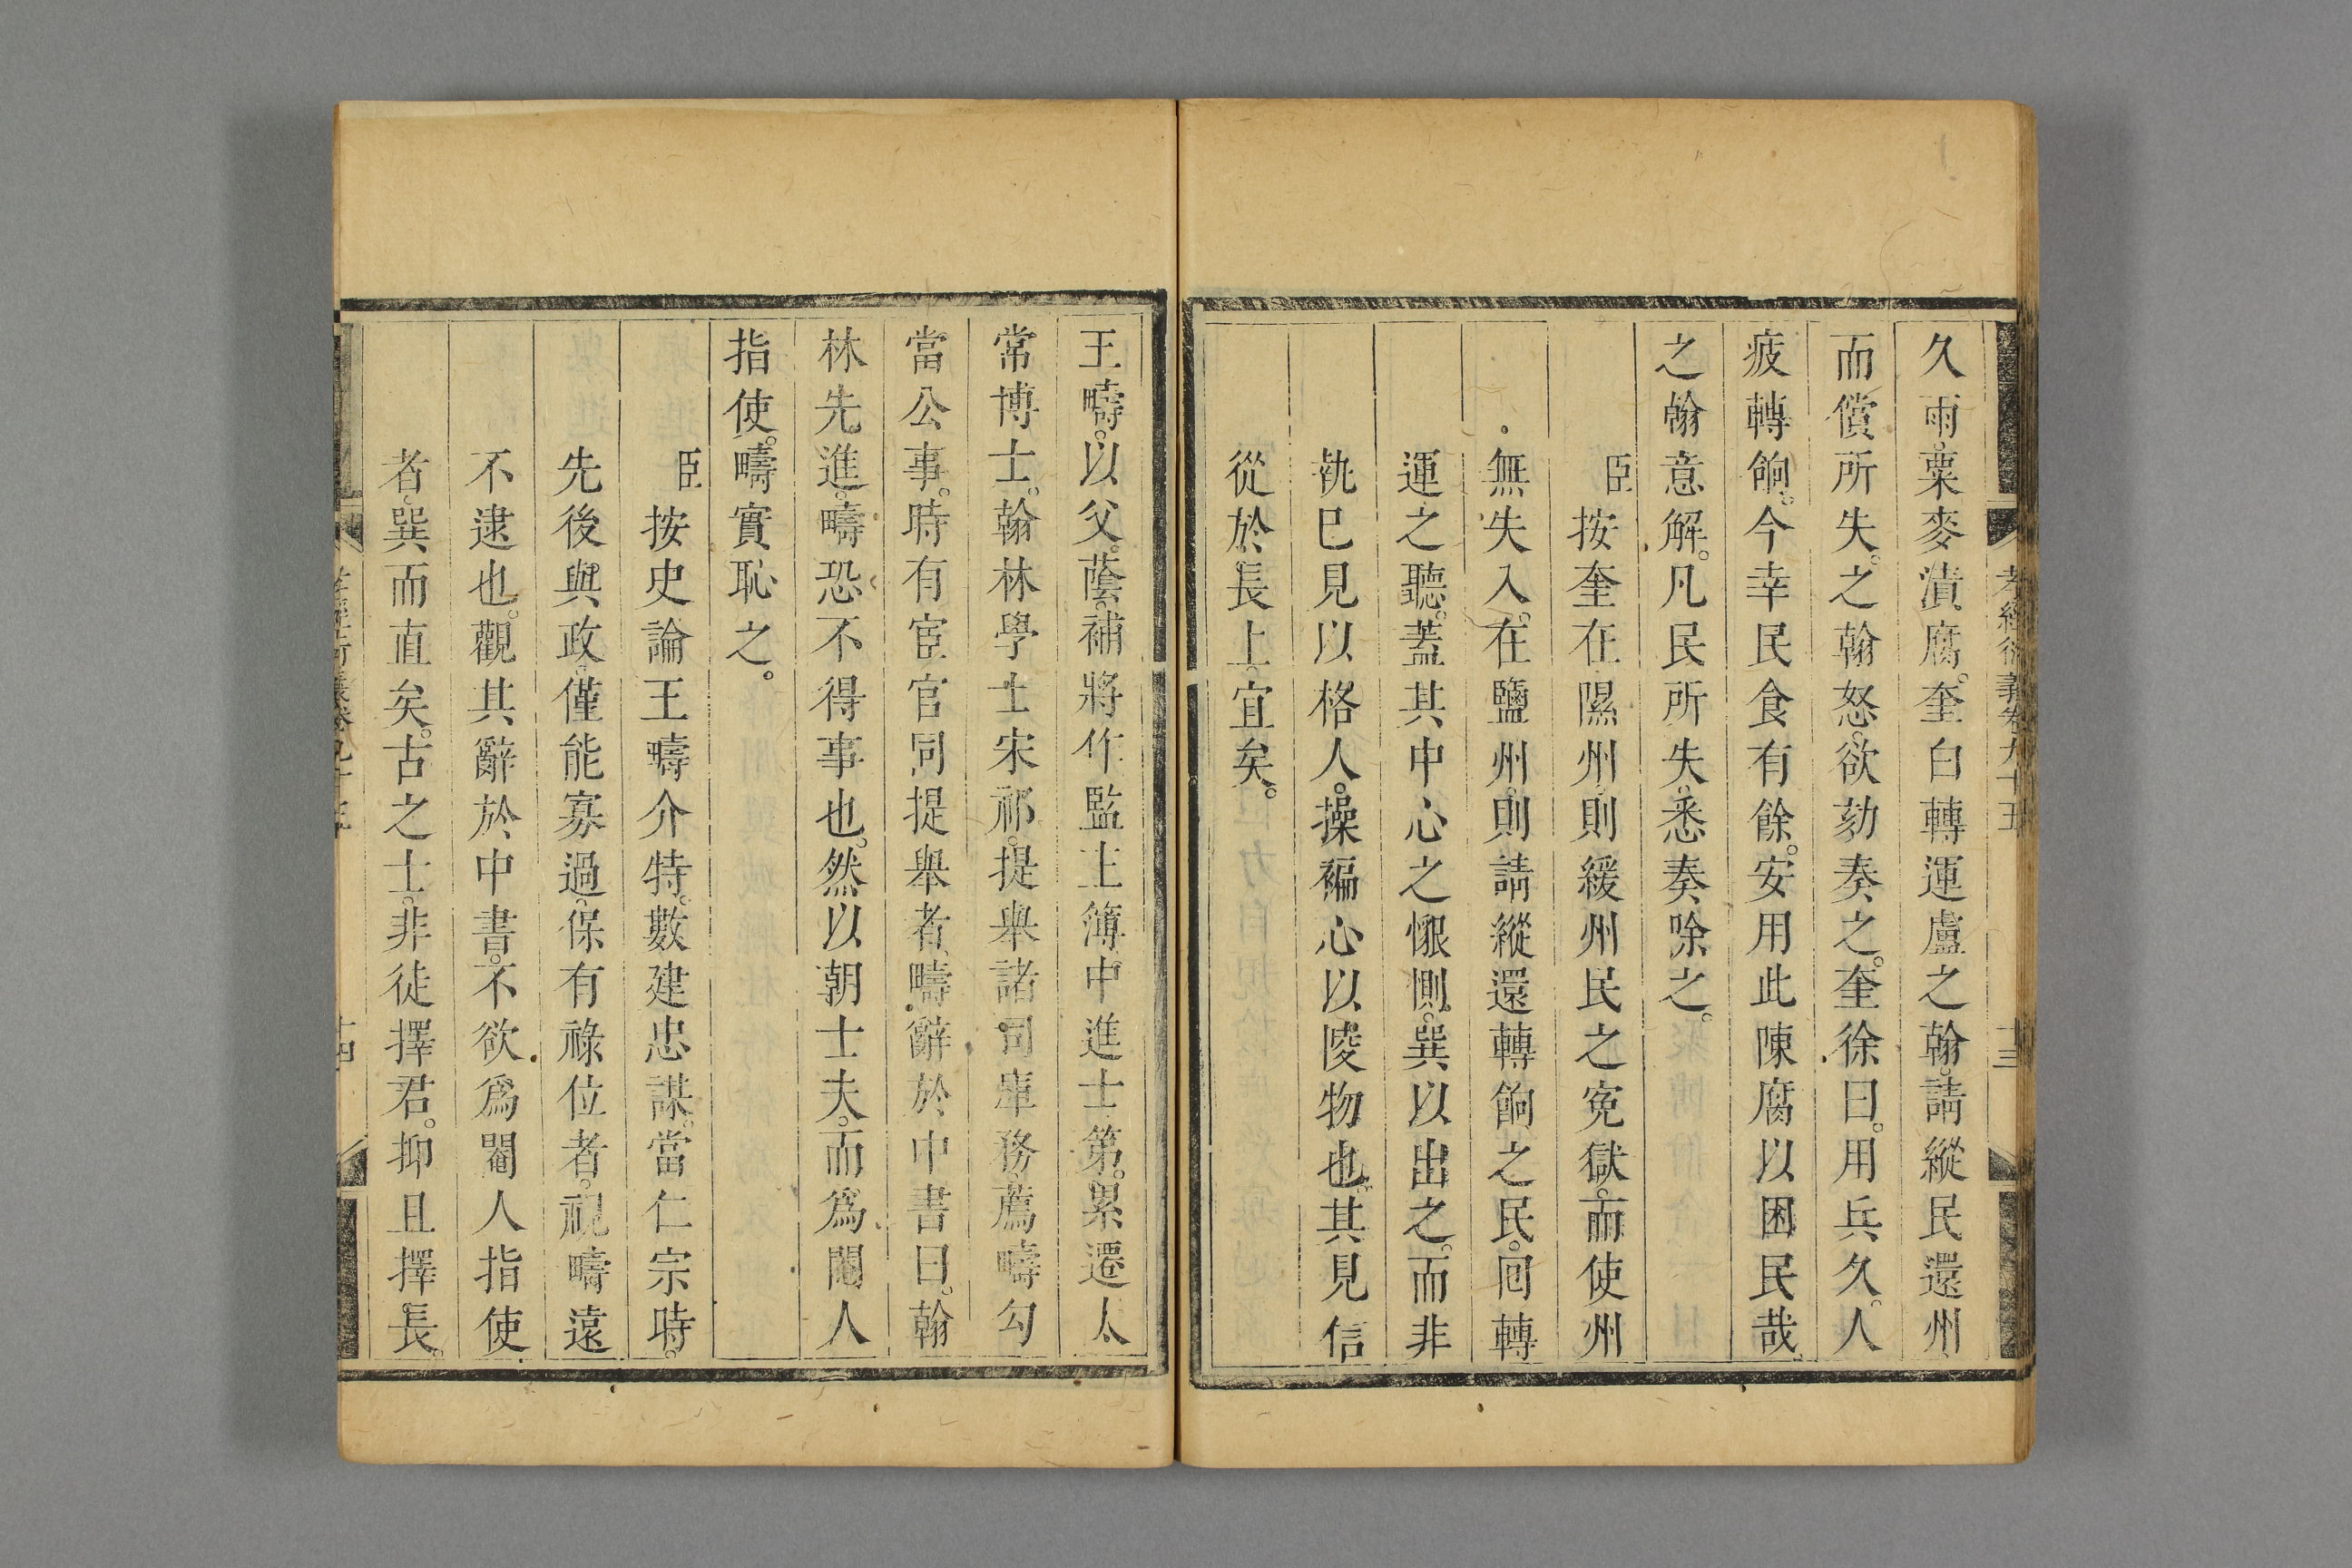 孝經衍義卷九十五
十三
久雨。粟麥漬腐。奎白轉運盧之翰。請縱民還州
而償所失。之翰怒。欲劾奏之。奎徐曰。用兵久。人
疲轉餉。今幸民食有餘。安用此陳腐以困民哉。
之翰意解。凡民所失。悉奏除之。
臣按奎在隰州則緩州民之寃獄。而使州
無失入。在鹽州。則請縱還轉餉之民。囘轉
運之聽。蓋其中心之懇惻。巽以出之。而非
執已見以格人。操褊心以陵物也。其見信
從於長上。宜矣。
王疇。以父。蔭。補將作監主簿。中進士第。累遷太
常博士。翰林學士宋祁。提舉諸司庫務。薦疇勾
當公事。時有宦官同提舉者。疇辭於中書曰。翰
林先進。疇恐不得事也。然以朝士夫。而爲閹人
指使。疇實恥之。
臣按史論王疇介特。數建忠謀。當仁宗時。
先後與政。僅能寡過。保有祿位者。視疇遠
不逮也。觀其辭於中書。不欲爲閹人指使
者。巽而直矣。古之士。非徒擇君。抑且擇長。
十四